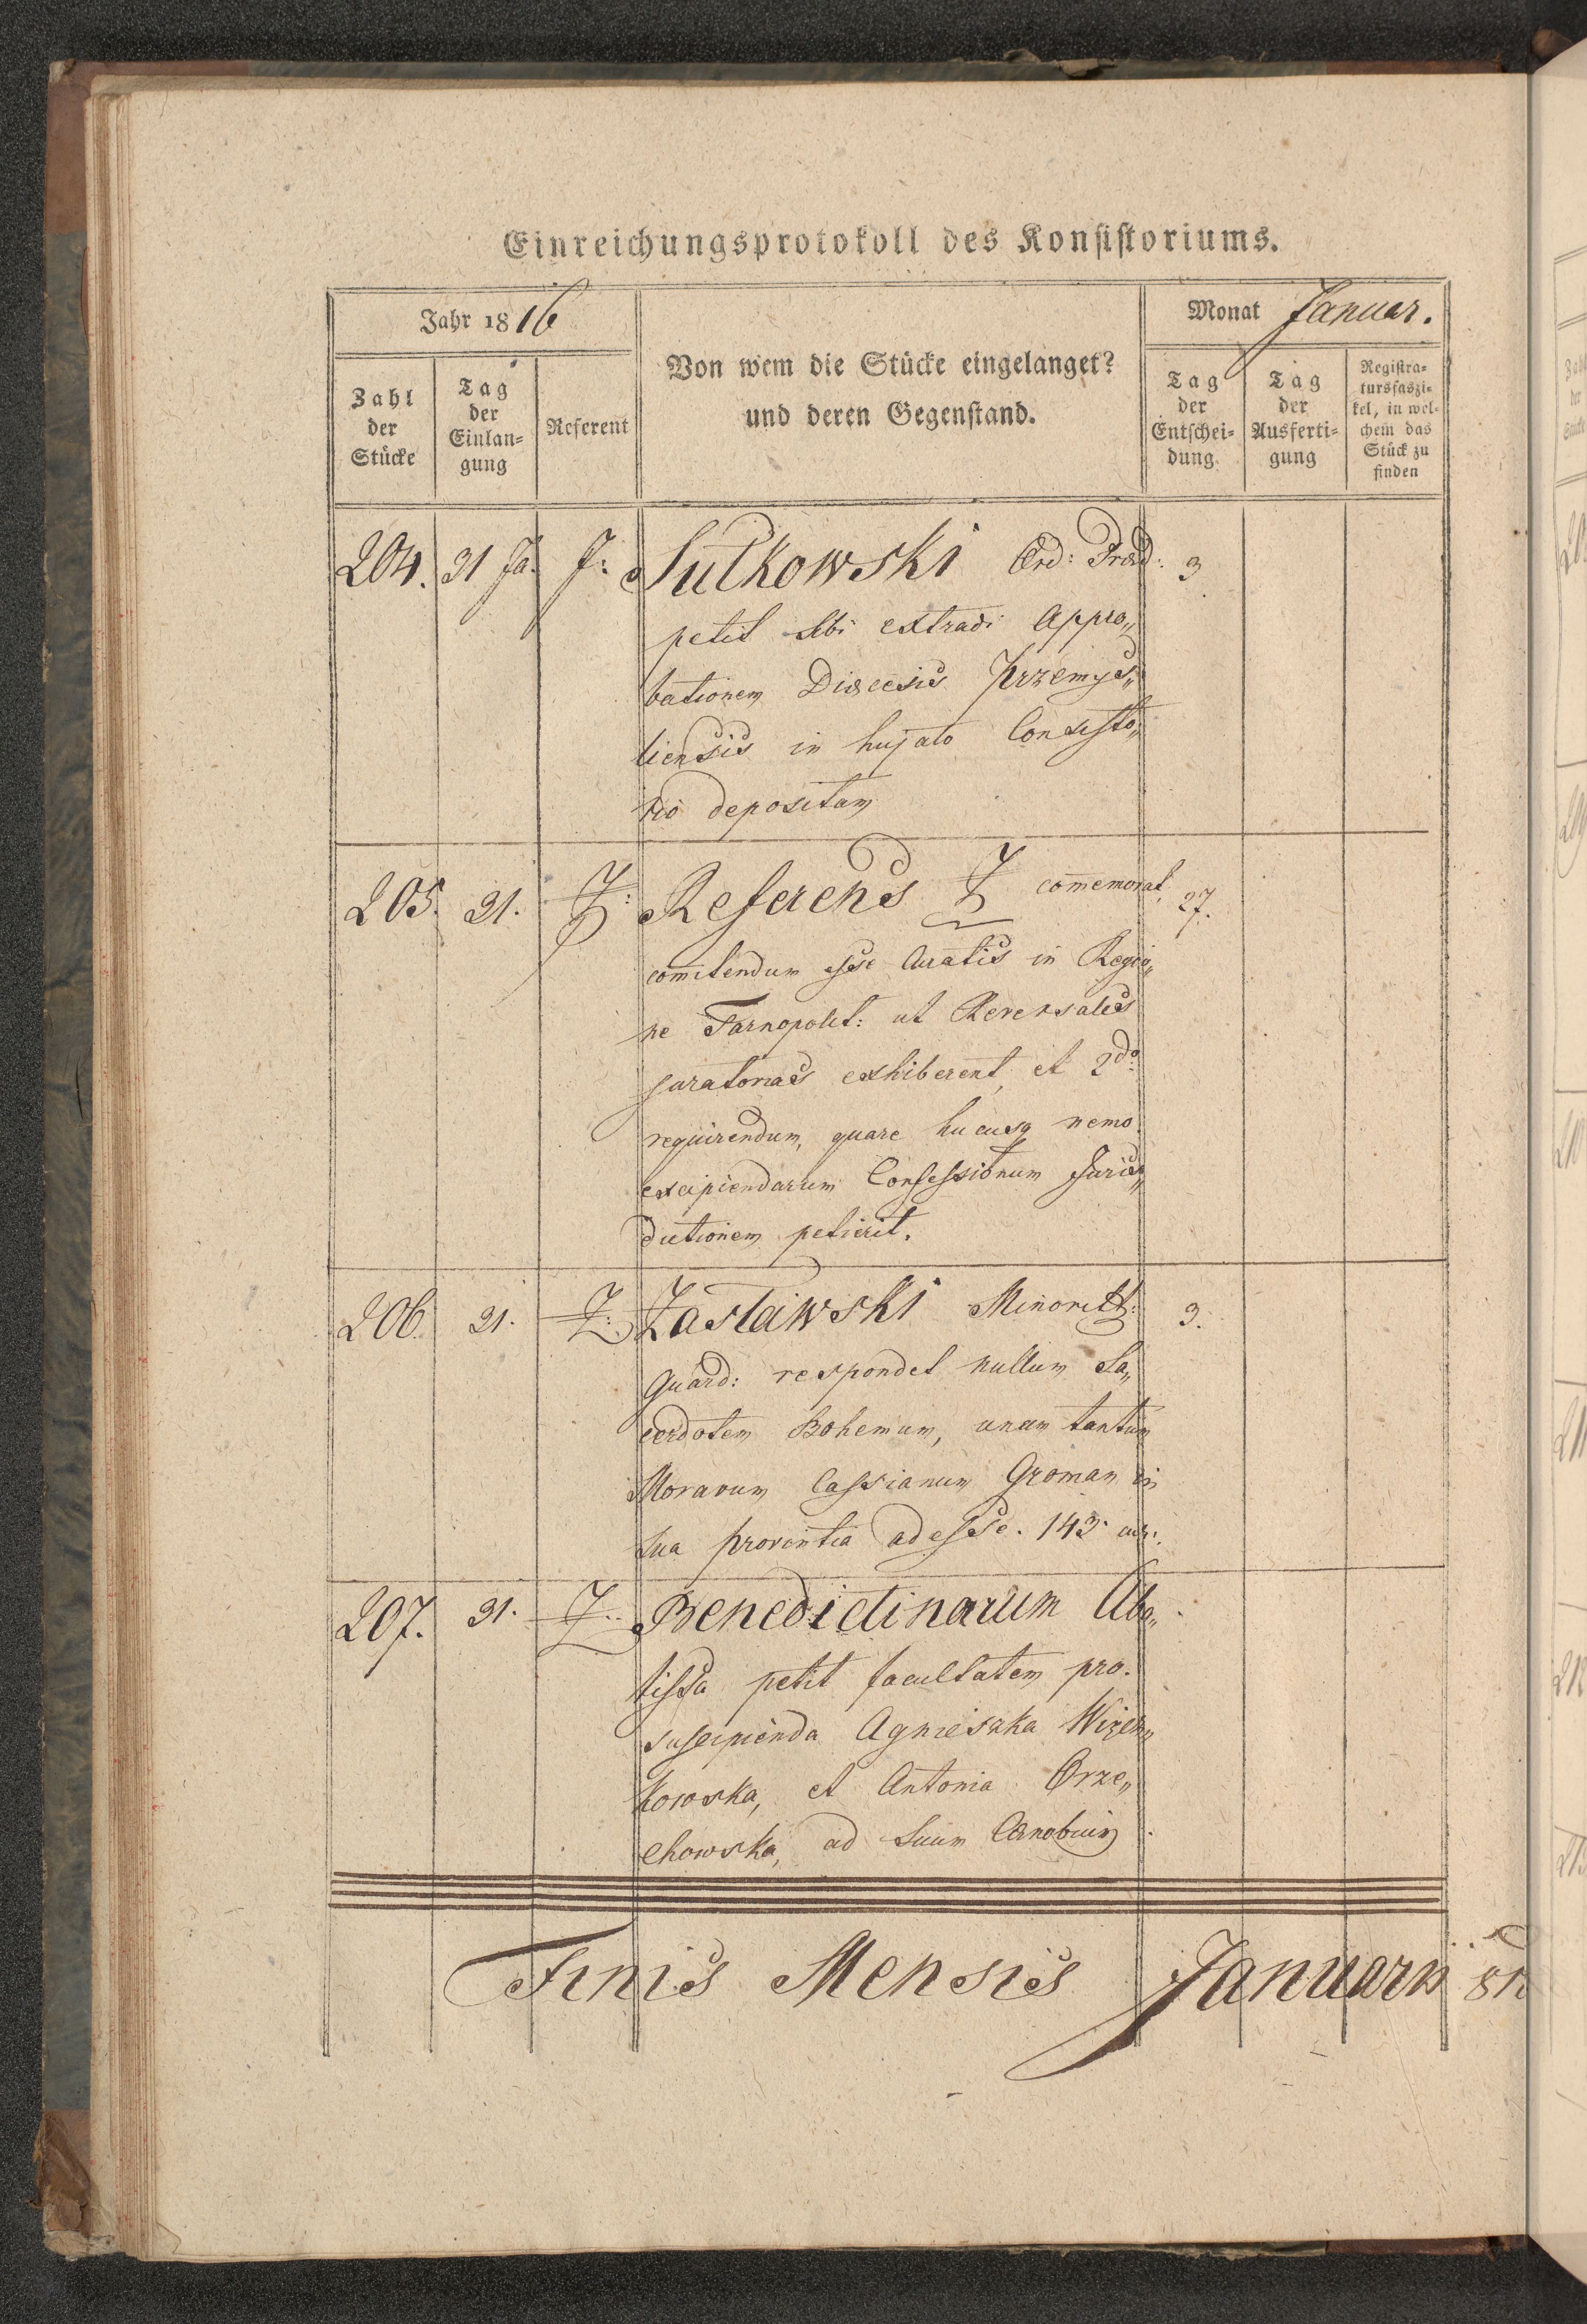 Einreichungsprotokoll des Konsistoriums.
Jahr 1816
Monat Januar.
Zahl der Stücke
Tag der Einlan=gung
Referent
Von wem die Stücke eingelanget?
und deren Gegenstand.
Tag der Entschei=dung
Tag der Ausferti=gung
Registra=tursfaszi=kel, in wel=chem das Stück zu finden
204. 31 Ja. J: Sulkowski Ord: Præd: 3
petit sibi extradi Appro„
bationem Diœcesis Przemys„
liensis in hujato Consisto„
rio depositam
205. 31. Z: Referens Z commemorat 27.
comitendum esse Curatis in Regio„
ne Tarnopolit: ut Reversales
juratorias exhiberent, et 2do
requirendum, quare hucusq nemo
excipiendarum Confessionum Juris„
dictionem petierit.
206. 31. Z: Zasławski Minorit: 3.
Guard: respondet nullum Sa„
cerdotem Bohemum, unum tantum
Moravum Cassianum Groman in
sua provintia adesse. 143 cur:
207. 31. Z: Benedictinarum Aba„
tissa petit facultatem pro
suscipienda Agnieszka
kowska, et Antonia Orze„
chowska, ad suum Cænobium
Finis Mensis Januarii